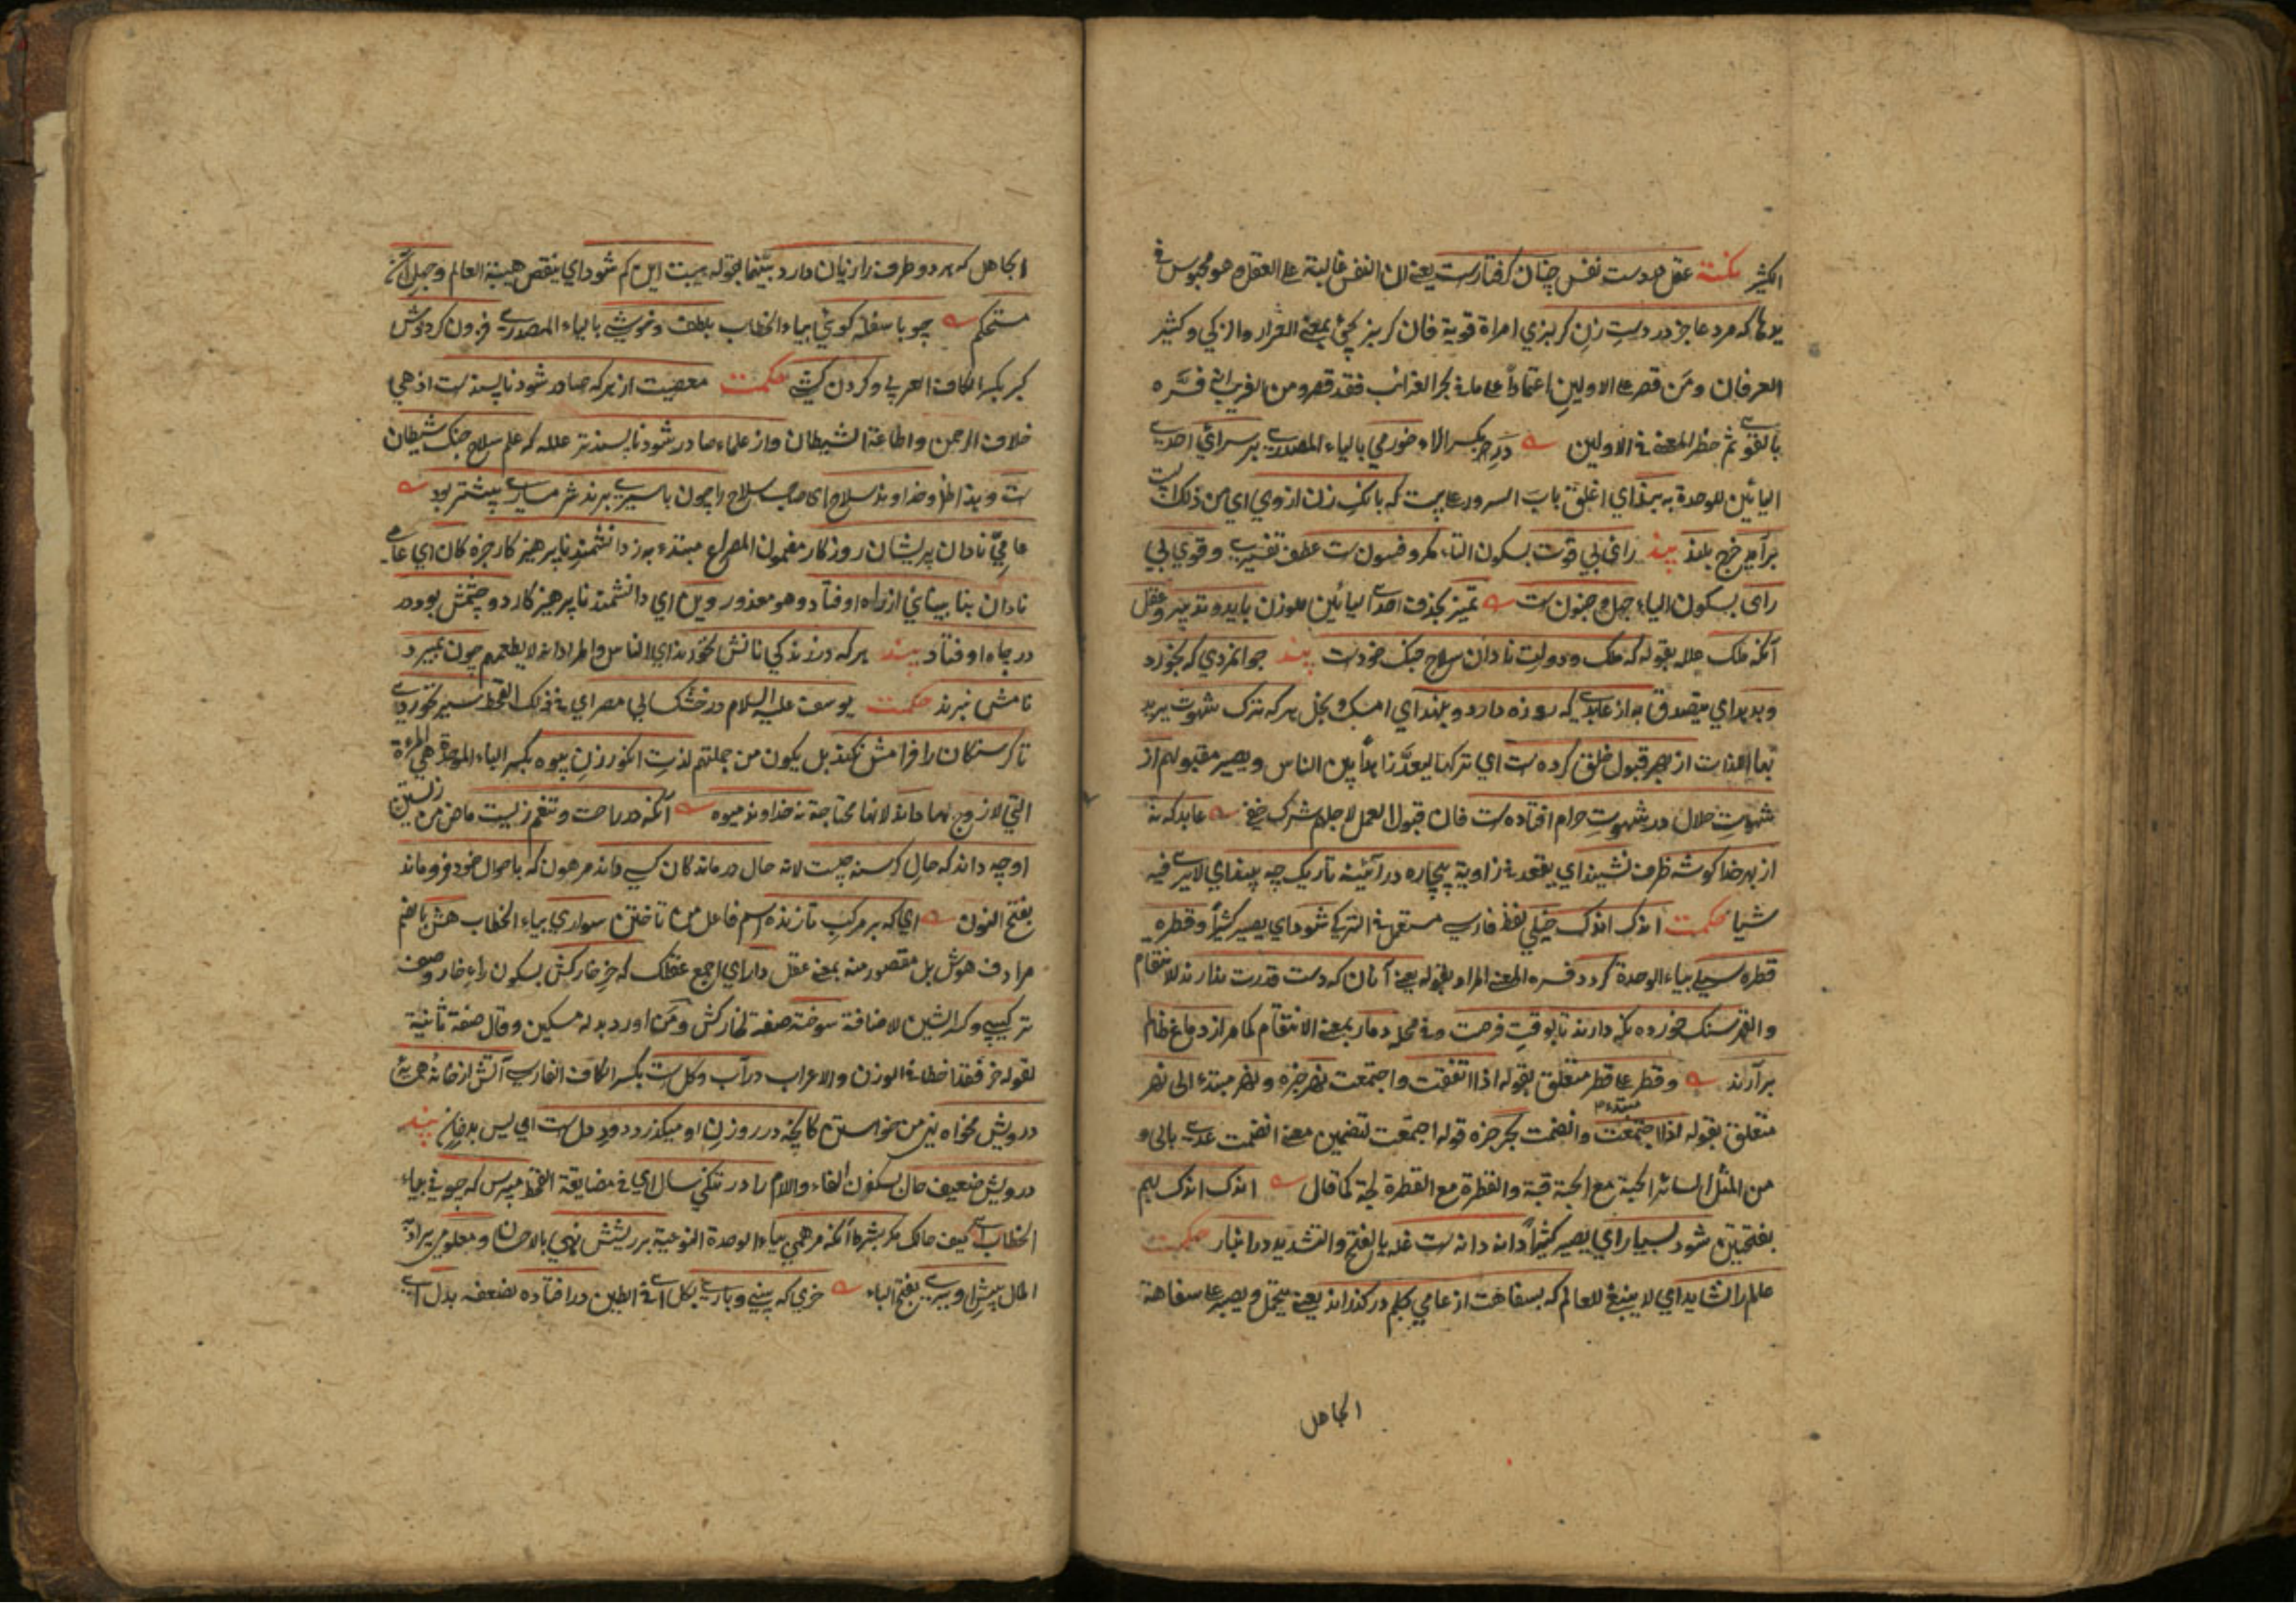 الكثير نكتة عقل در دست نفس چنان گرفتارست يعني ان النفس غالبة على العقل وهو محبوس في
يدها كه مرد عاجز در دست زن گربزي امراة قوية فان گربز يجيء بمعنى الغرار والزكي وكثير
العرفان ومن قصر على الاولين اعتمادا على ما في بحر الغرائب فقد قصر ومن الغريب انه فسره
بالقوي ثم حظر المعنى في الاولين در بكسر الراء خورمي بالياء المصدري بر سراي احدى
اليائين للوحدة به بند اي اغلق باب السرور على بيت كه بانك زن از وي اي من ذلك البيت
برآيد خرج بلند پند راي بي قوت بسكون التاء مكر وفسون ست عطف تفسيري وقوي بي
راي بسكون الياء جهل وجنون ست تميز بحذف احدى اليائين للوزن بايد وتدبير وعقل
آنكه ملك علله بقوله كه ملك ودولت نادان سلاح جنك خودست پند جوانمردي كه بخورد
وبدهد اي يتصدق به از عابدي كه روزه دارد وبنهد اي امسك وبخل هركه ترك شهوت يريد
بها اللذات از بهر قبول خلق كرده ست اي تركها ليعد زاهدا بين الناس ويصير مقبولهم از
شهوت حلال در شهوت حرام افتاده ست فان قبول العمل لاجلهم شرك خفي عابد كه نه
از بهر خدا كوشه ظرف نشيند اي يقعد في زاوية بيچاره در آئينه تاريك چه بيند اي لا يرى فيه
شيا حكمت اندك اندك خيلي لفظ فارسي مستعمل في التركي شود اي يصير كثيرا وقطره
قطره سيلي بياء الوحدة كردد فسره المعنى المراد بقوله يعني آنان كه دست قدرت ندارند للانتقام
والقهر سنك خورده نكه دارند تا بوقت فرصت وفي محله دمار بمعنى الانتقام كما مر از دماغ ظالم
برآرند وقطر على قطر متعلق بقوله اذا اتفقت واجتمعت نهر خبره ونهر مبتدء الى نهر
متعلق بقوله اذا اجتمعت وانضمت بحر خبره قوله اجتمعت لتضمين معنى انضمت عدي بالى و
من المثل السائر الحبة مع الحبة قبة والقطرة مع القطرة لجة كما قال اندك اندك بهم
بفتحتين شود بسيار اي يصير كثيرا دانه دانه ست غله بالفتح والتشديد در انبار حكمت
عالم را نشايد اي لا ينبغي للعالم كه بسفاهت از عامي بحلم در گذراند يعني يتحمل ويصبر على سفاهة
الجاهل
الجاهل كه هر دو طرف را زيان دارد بينهما بقوله هيبت اين كم شود اي ينقص هيبة العالم وجهل آن
مستحكم چو با سفله كوئي بياء الخطاب بلطف وخوشي بالياء المصدري فزون كرددش
كبر بكسر الكاف العربي وكردن كشي حكمت معصيت از هركه صادر شود ناپسندست اذ هي
خلاف الرحمن واطاعة الشيطان واز علماء صادر شود ناپسندتر علله كه علم سلاح جنك شيطان
ست وبذا ظل وخداوند سلاح اي صاحب سلاح را چون باسيري برند شرمساري بيشتر بود
عامي نادان پريشان روزكار مضمون المصراع مبتدء به ز دانشمند ناپرهيزكار خبره كان اي عامي
نادان بنا بينائي از راه اوفتاد وهو معذور وين اي دانشمند ناپرهيزكار دو چشمش بود و
در چاه اوفتاد پند هركه در زندكي نانش نخورند اي الناس والمراد انه لا يطعمهم چون بميرد
نامش نبرند حكمت يوسف عليه السلام در خشك سالي مصر اي في ذلك القحط سير نخوردي
تا كرسنكان را فرامش نكند بل يكون من جملتهم لذت انكور زن بيوه بكسر الباء الموحدة هي المرءة
التي لا زوج لها داند لانها محتاجة نه خداوند ميوه آنكه در راحت وتنعم زيست ماض من زيستن
او چه داند كه حال كرسنه چيست لانه حال درماندكان كسي داند مرهون كه باحوال خود فروماند
بفتح النون اي كه بر مركب تازنده اسم فاعل من تاختن سواري بياء الخطاب هش بالضم
مرادف هوش بل مقصور منه بمعنى عقل دار اي اجمع عقلك كه خر خاركش بسكون راء خار وصف
تركيبي وكسر الشين للاضافة سوخته صفة لخاركش ومن اورد بدله مسكين وقال صفة ثانية
لقوله خر فقد اخطا في الوزن والاعراب در آب وكل ست بكسر الكاف الفارسي آتش از خانه همسايه
درويش مخواه نهي من خواستن كانچه در روزن او ميكذرد دود دل ست اي ليس بدخان پند
درويش ضعيف حال بسكون الفاء واللام را در تنكي سال اي في مضايقة القحط مپرس كه چوني بياء
الخطاب اي كيف حالك مكر بشرط آنكه مرهمي بياء الوحدة النوعية بر ريشش نهي بالاحسان ومعلومي يراد به
المال پيش او بري بفتح الباء خري كه بيني وباري بكل اي في الطين در افتاده لضعفه بدل اي